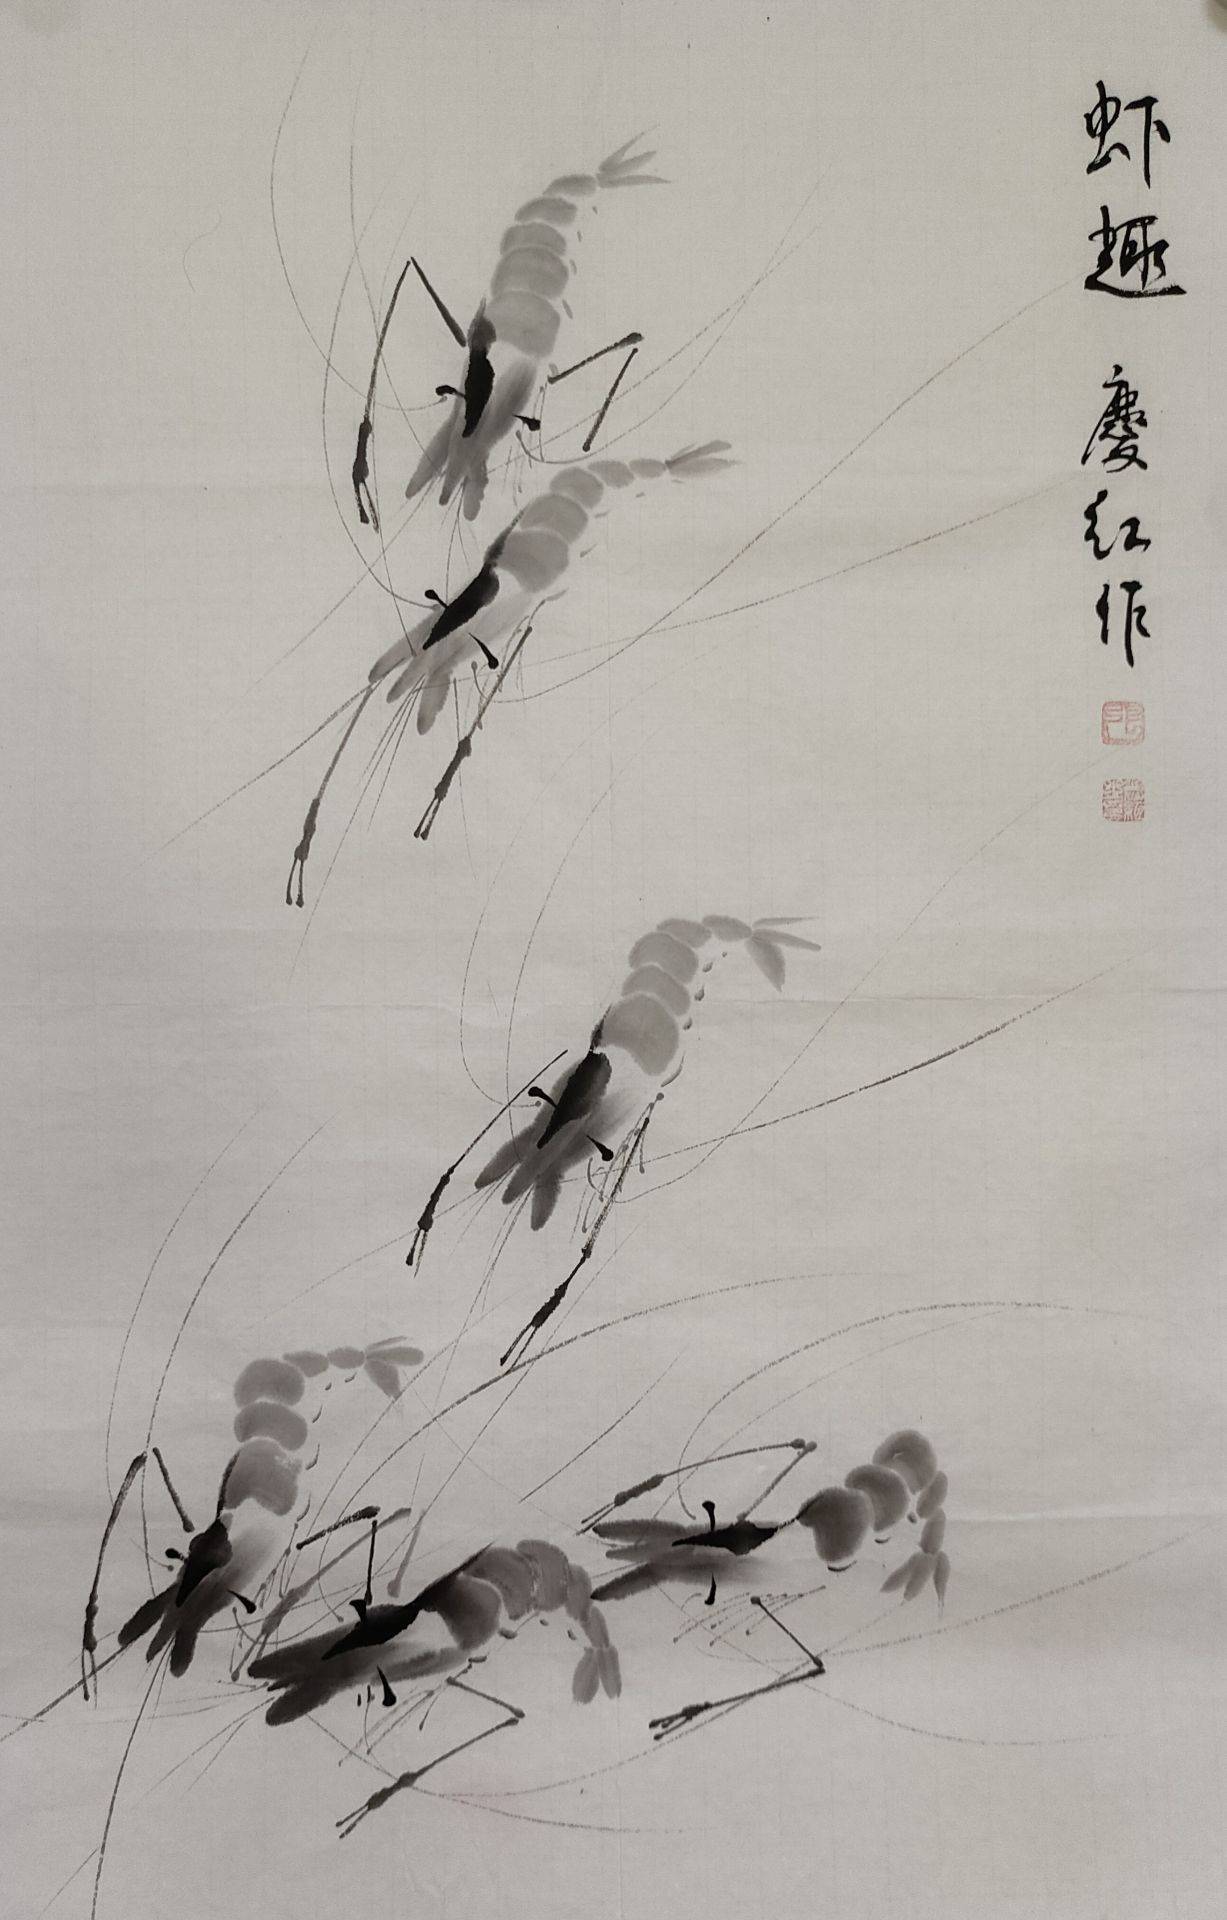 虾趣 慶红作